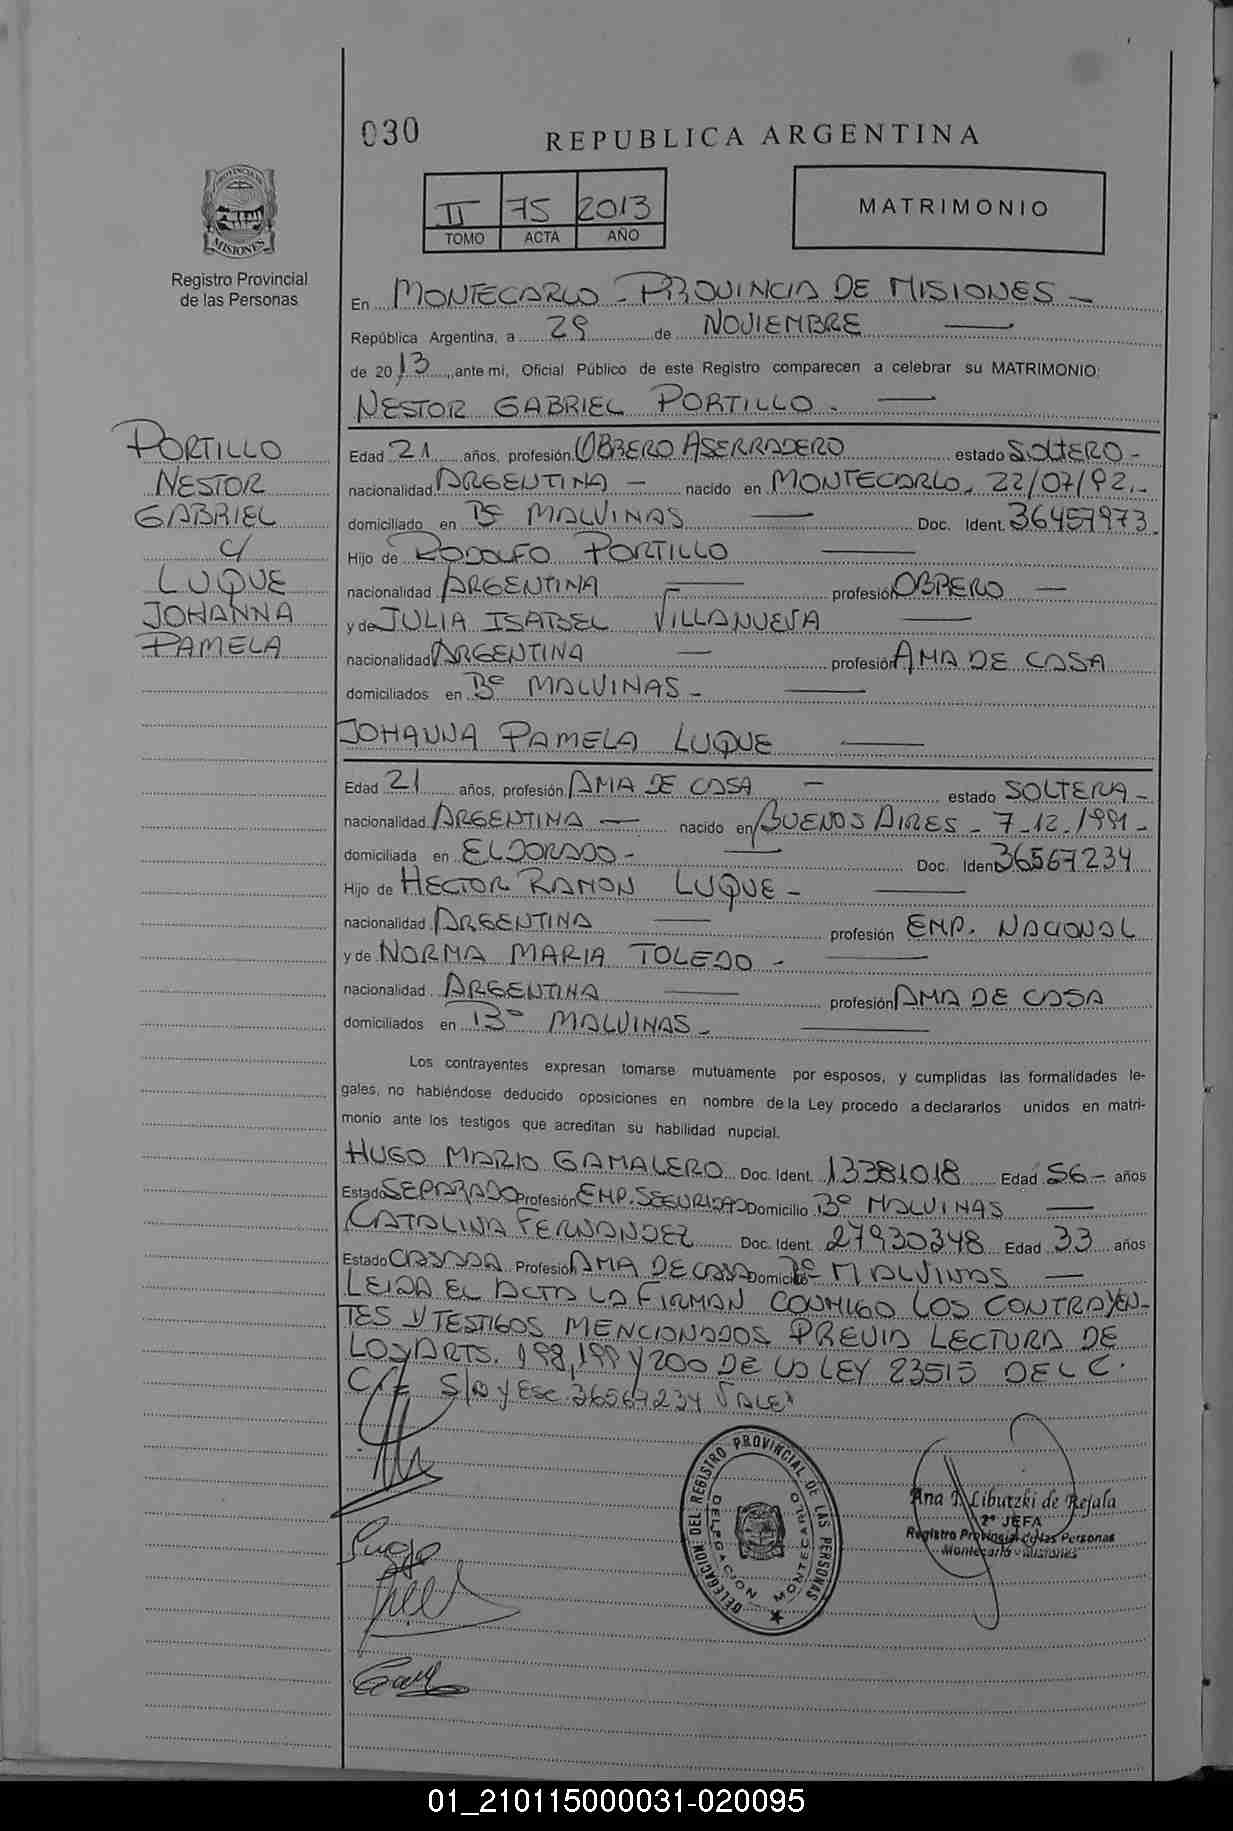 030
REPUBLICA ARGENTINA
PROVINCIA DE
MISIONES
Registro Provincial
de las Personas
II 75 2013
TOMO ACTA AÑO
MATRIMONIO
En MONTECARLO - PROVINCIA DE MISIONES -
República Argentina, a 29 de NOVIEMBRE
de 2013, ante mi, Oficial Público de este Registro comparecen a celebrar su MATRIMONIO:
NESTOR GABRIEL PORTILLO.
PORTILLO
NESTOR
GABRIEL
C/
LUQUE
JOHANNA
PAMELA
Edad 21 años, profesión OBRERO ASERRADERO estado SOLTERO -
nacionalidad ARGENTINA - nacido en MONTECARLO, 22/07/92.-
domiciliado en Bº MALVINAS Doc. Ident. 36457973
Hijo de RODOLFO PORTILLO
nacionalidad ARGENTINA profesión OBRERO -
y de JULIA ISABEL VILLANUEVA
nacionalidad ARGENTINA - profesión AMA DE CASA
domiciliados en Bº MALVINAS -
JOHANNA PAMELA LUQUE
Edad 21 años, profesión AMA DE CASA - estado SOLTERA -
nacionalidad ARGENTINA - nacido en BUENOS AIRES - 7-12-1991 -
domiciliada en ELDORADO - Doc. Ident 36567234
Hijo de HECTOR RAMON LUQUE -
nacionalidad ARGENTINA profesión EMP. NACIONAL
y de NORMA MARIA TOLEDO -
nacionalidad ARGENTINA profesión AMA DE CASA
domiciliados en Bº MALVINAS -
Los contrayentes expresan tomarse mutuamente por esposos, y cumplidas las formalidades le-
gales, no habiéndose deducido oposiciones en nombre de la Ley procedo a declararlos unidos en matri-
monio ante los testigos que acreditan su habilidad nupcial.
HUGO MARIO GAMALERO Doc. Ident. 13381018 Edad 56 - años
Estado SEPARADO Profesión EMP. SEGURIDAD Domicilio Bº MALVINAS
CATALINA FERNANDEZ Doc. Ident. 27930348 Edad 33 años
Estado CASADA Profesión AMA DE CASA Domicilio Bº MALVINAS
LEIDA EL ACTA LA FIRMAN CONMIGO LOS CONTRAYEN-
TES Y TESTIGOS MENCIONADOS PREVIA LECTURA DE
LOS ARTS. 198, 199 Y 200 DE LA LEY 23515 DEL C.
S/R y Esc 36567234 VALE
DELEGACION DEL REGISTRO PROVINCIAL DE LAS PERSONAS
DELEGACION MONTECARLO
Ana T. Libutzki de Rejala
2º JEFA
Registro Provincial de las Personas
Montecarlo - Misiones
01_210115000031-020095